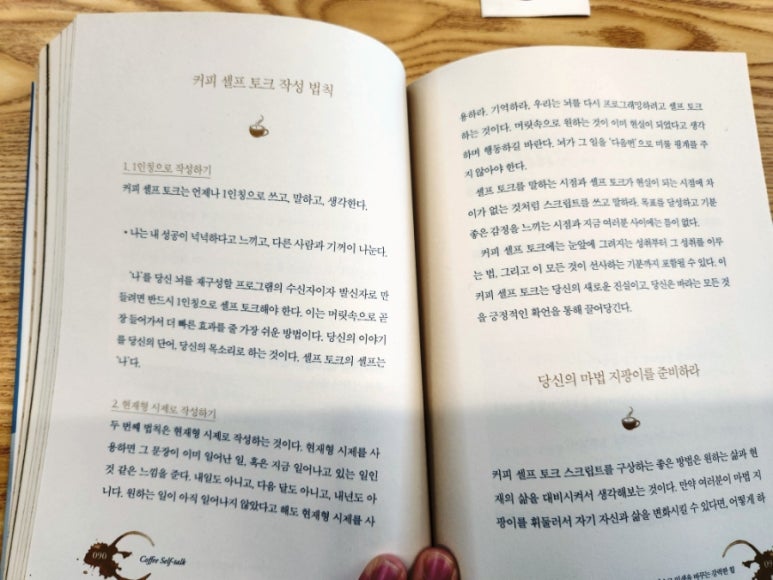 커피 셀프 토크 작성 법칙
1. 1인칭으로 작성하기
커피 셀프 토크는 언제나 1인칭으로 쓰고, 말하고, 생각한다.
• 나는 내 성공이 넉넉하다고 느끼고, 다른 사람과 기꺼이 나눈다.
'나'를 당신 뇌를 재구성할 프로그램의 수신자이자 발신자로 만
들려면 반드시 1인칭으로 셀프 토크해야 한다. 이는 머릿속으로 곧
장 들어가서 더 빠른 효과를 줄 가장 쉬운 방법이다. 당신의 이야기
를 당신의 단어, 당신의 목소리로 하는 것이다. 셀프 토크의 셀프는
'나'다.
2. 현재형 시제로 작성하기
두 번째 법칙은 현재형 시제로 작성하는 것이다. 현재형 시제를 사
용하면 그 문장이 이미 일어난 일, 혹은 지금 일어나고 있는 일인
것 같은 느낌을 준다. 내일도 아니고, 다음 달도 아니고, 내년도 아
니다. 원하는 일이 아직 일어나지 않았다고 해도 현재형 시제를 사
090
Coffee Self-talk
용하라. 기억하라. 우리는 뇌를 다시 프로그래밍하려고 셀프 토크
하는 것이다. 머릿속으로 원하는 것이 이미 현실이 되었다고 생각
하며 행동하길 바란다. 뇌가 그 일을 '다음번'으로 미룰 핑계를 주
지 않아야 한다.
셀프 토크를 말하는 시점과 셀프 토크가 현실이 되는 시점에 차
이가 없는 것처럼 스크립트를 쓰고 말하라. 목표를 달성하고 기분
좋은 감정을 느끼는 시점과 지금 여러분 사이에는 틈이 없다.
커피 셀프 토크에는 눈앞에 그려지는 성취부터 그 성취를 이루
는 법, 그리고 이 모든 것이 선사하는 기분까지 포함될 수 있다. 이
커피 셀프 토크는 당신의 새로운 진실이고, 당신은 바라는 모든 것
을 긍정적인 확언을 통해 끌어당긴다.
당신의 마법 지팡이를 준비하라
커피 셀프 토크 스크립트를 구상하는 좋은 방법은 원하는 삶과 현
재의 삶을 대비시켜서 생각해보는 것이다. 만약 여러분이 마법 지
팡이를 휘둘러서 자기 자신과 삶을 변화시킬 수 있다면, 어떻게 하
바꾸는 강력한 힘